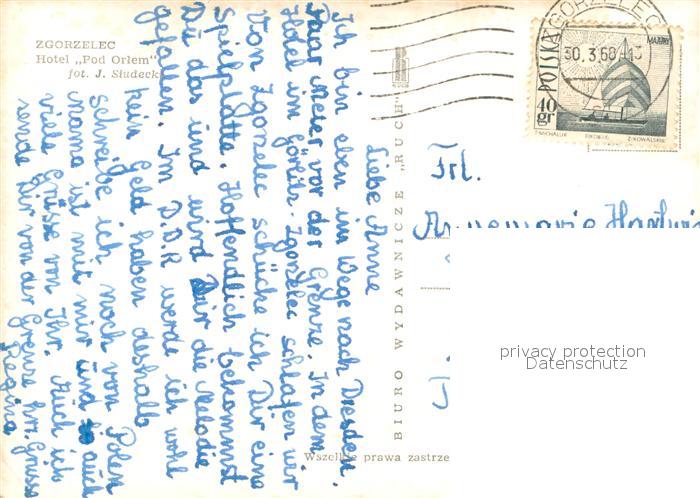 ZGORZELEC
Hotel „Pod Orłem"
fot. J. Siudecki
BIURO WYDAWNICZE „RUCH"
Wszelkie prawa zastrze
ZGORZELEC
30.3.68-13
POLSKA
MAZURY
40 gr
Frl.
Annemarie
privacy protection
Datenschutz
Liebe Anne
Ich bin eben im Wege nach Dresden.
Paar Meter vor der Grenze. In dem
Hotel im Görlitz-Zgorzelec schlafen wir
Von Zgorzelec schücke ich Dir eine
Spielplatte. Hoffendlich bekommst
Du das und wird Dir die Melodie
gefallen. Im D.D.R werde ich wohl
kein Geld haben deshalb
schreibe ich noch von Polen
mama ist mit mir und auch
viele Grüsse von Ihr. Auch ich
sende Dir von der Grenze hrz. Grüsse
Regina